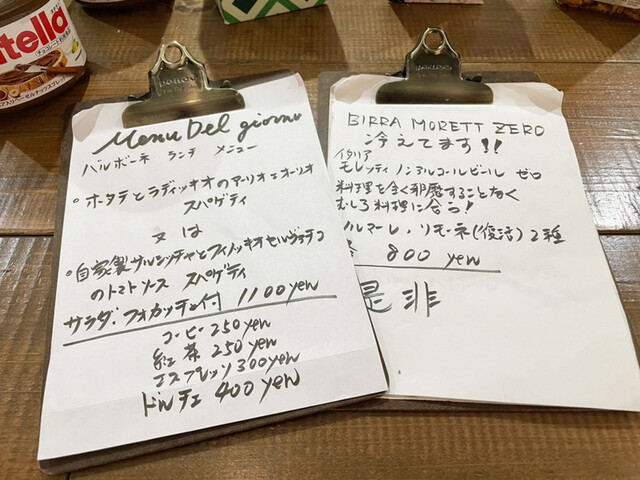 utella
Menu Del giorno
バルボーネ ランチ メニュー
・ホタテとラディッキオのアーリオエオーリオ
スパゲティ
又は
・自家製サルシッチャとフィノッキオセルヴァチコ
のトマトソース スパゲティ
サラダ・フォカッチャ付 1100yen
コーヒー 250yen
紅茶 250yen
エスプレッソ 300yen
ドルチェ 400yen
BIRRA MORETT ZERO
冷えてます!!
イタリア
モレッティノンアルコールビール ゼロ
料理を全く邪魔することなく
むしろ料理に合う!
ノルマーレ、リモーネ(復活)2種
各 800 yen
是非